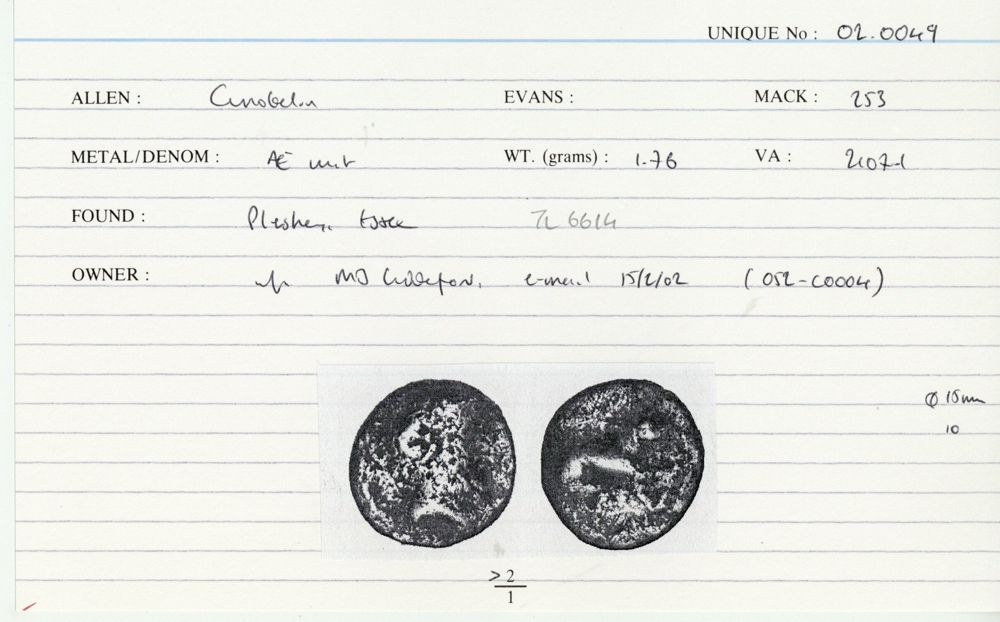 UNIQUE No : 02.0049
ALLEN : Cunobelin EVANS : MACK : 253
METAL/DENOM : Æ unit WT. (grams) : 1.76 VA : 2107-1
FOUND : Pleshey, Essex TL 6614
OWNER : MJ e-mail 15/2/02 (052-C0004)
Ø 15mm
10
>2
1